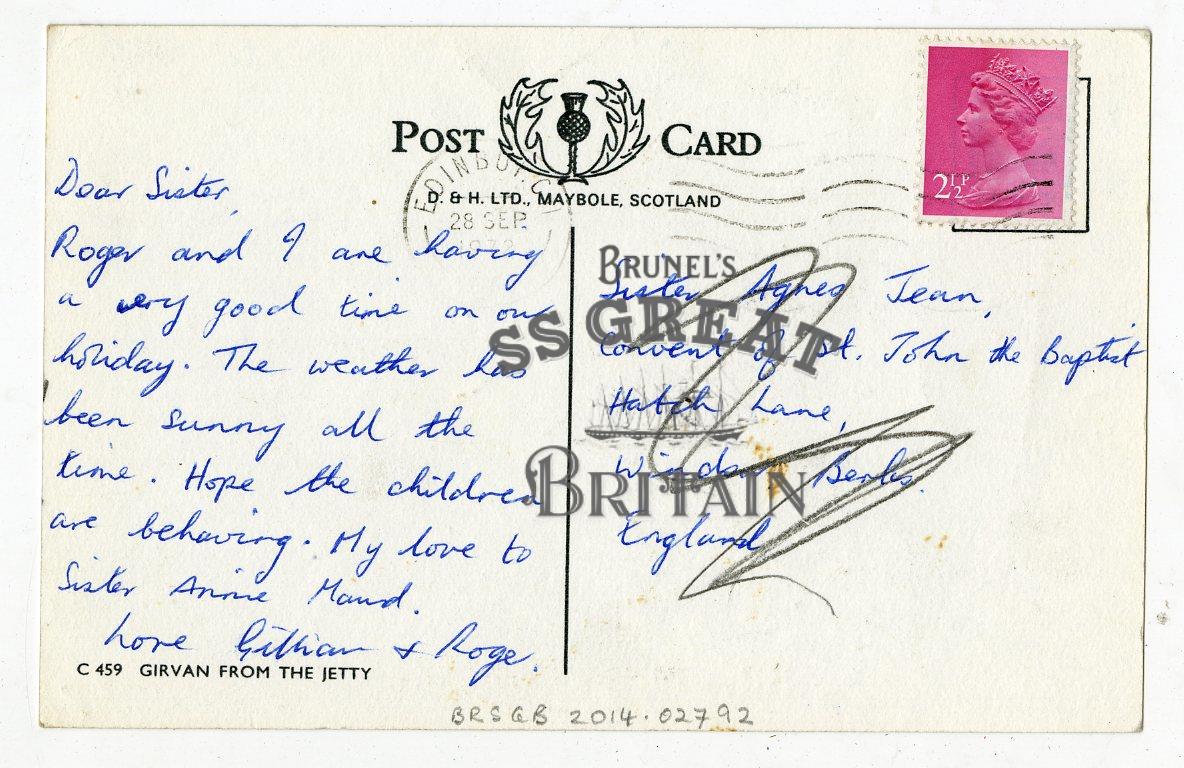 POST CARD
D. & H. LTD., MAYBOLE, SCOTLAND
EDINBURGH
28 SEP
2½P
Dear Sister,
Roger and I are having
a very good time on our
holiday. The weather has
been sunny all the
time. Hope the children
are behaving. My love to
Sister Annie Maud.
Love Gillian & Roge.
C 459 GIRVAN FROM THE JETTY
Sister Agnes Jean,
Convent of St. John the Baptist
Hatch Lane,
Windsor Berks.
England
BRUNEL'S
SS GREAT
BRITAIN
BRSGB 2014.02792